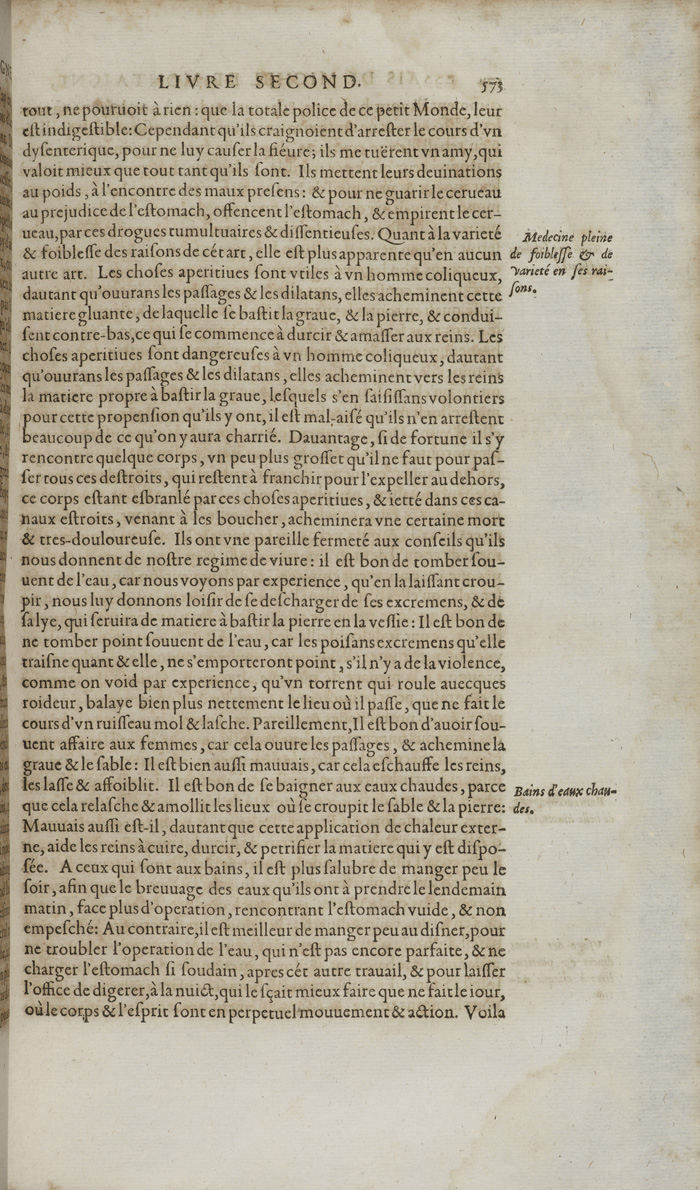 LIVRE SECOND. 573
tout, ne pouruoit à rien : que la totale police de ce petit Monde, leur
eſt indigeſtible: Cependant qu'ils craignoient d'arreſter le cours d'vn
dyſenterique, pour ne luy cauſer la fiéure; ils me tuërent vn amy, qui
valoit mieux que tout tant qu'ils ſont. Ils mettent leurs deuinations
au poids, à l'encontre des maux preſens: & pour ne guarir le cerueau
au prejudice de l'eſtomach, offencent l'eſtomach, & empirent le cer-
ueau, par ces drogues tumultuaires & diſſentieuſes. Quant à la varieté
& foibleſſe des raiſons de cét art, elle eſt plus apparente qu'en aucun
autre art. Les choſes aperitiues ſont vtiles à vn homme coliqueux,
dautant qu'ouurans les paſſages & les dilatans, elles acheminent cette
matiere gluante, de laquelle ſe baſtit la graue, & la pierre, & condui-
ſent contre-bas, ce qui ſe commence à durcir & amaſſer aux reins. Les
choſes aperitiues ſont dangereuſes à vn homme coliqueux, dautant
qu'ouurans les paſſages & les dilatans, elles acheminent vers les reins
la matiere propre à baſtir la graue, leſquels s'en ſaiſiſſans volontiers
pour cette propenſion qu'ils y ont, il eſt mal-aiſé qu'ils n'en arreſtent
beaucoup de ce qu'on y aura charrié. Dauantage, ſi de fortune il s'y
rencontre quelque corps, vn peu plus groſſet qu'il ne faut pour paſ-
ſer tous ces deſtroits, qui reſtent à franchir pour l'expeller au dehors,
ce corps eſtant eſbranlé par ces choſes aperitiues, & ietté dans ces ca-
naux eſtroits, venant à les boucher, acheminera vne certaine mort
& tres-douloureuſe. Ils ont vne pareille fermeté aux conſeils qu'ils
nous donnent de noſtre regime de viure : il eſt bon de tomber ſou-
uent de l'eau, car nous voyons par experience, qu'en la laiſſant crou-
pir, nous luy donnons loiſir de ſe deſcharger de ſes excremens, & de
ſa lye, qui ſeruira de matiere à baſtir la pierre en la veſſie : Il eſt bon de
ne tomber point ſouuent de l'eau, car les poiſans excremens qu'elle
traiſne quant & elle, ne s'emporteront point, s'il n'y a de la violence,
comme on void par experience, qu'vn torrent qui roule auecques
roideur, balaye bien plus nettement le lieu où il paſſe, que ne fait le
cours d'vn ruiſſeau mol & laſche. Pareillement, Il eſt bon d'auoir ſou-
uent affaire aux femmes, car cela ouure les paſſages, & achemine la
graue & le ſable : Il eſt bien auſſi mauuais, car cela eſchauffe les reins,
les laſſe & affoiblit. Il eſt bon de ſe baigner aux eaux chaudes, parce
que cela relaſche & amollit les lieux où ſe croupit le ſable & la pierre:
Mauuais auſſi eſt-il, dautant que cette application de chaleur exter-
ne, aide les reins à cuire, durcir, & petrifier la matiere qui y eſt diſpo-
ſée. A ceux qui ſont aux bains, il eſt plus ſalubre de manger peu le
ſoir, afin que le breuuage des eaux qu'ils ont à prendre le lendemain
matin, face plus d'operation, rencontrant l'eſtomach vuide, & non
empeſché: Au contraire, il eſt meilleur de manger peu au diſner, pour
ne troubler l'operation de l'eau, qui n'eſt pas encore parfaite, & ne
charger l'eſtomach ſi ſoudain, apres cét autre trauail, & pour laiſſer
l'office de digerer, à la nuict, qui le ſçait mieux faire que ne fait le iour,
où le corps & l'eſprit ſont en perpetuel mouuement & action. Voila
Medecine pleine
de foibleſſe & de
varieté en ſes rai-
ſons.
Bains d'eaux chau-
des.